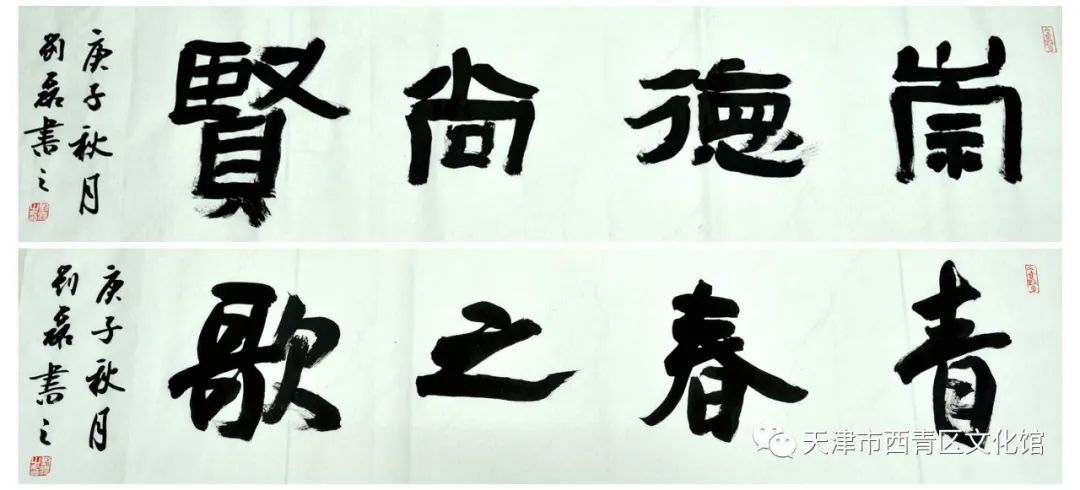 崇德尚賢
庚子秋月
劉磊書之
青春之歌
庚子秋月
劉磊書之
天津市西青区文化馆